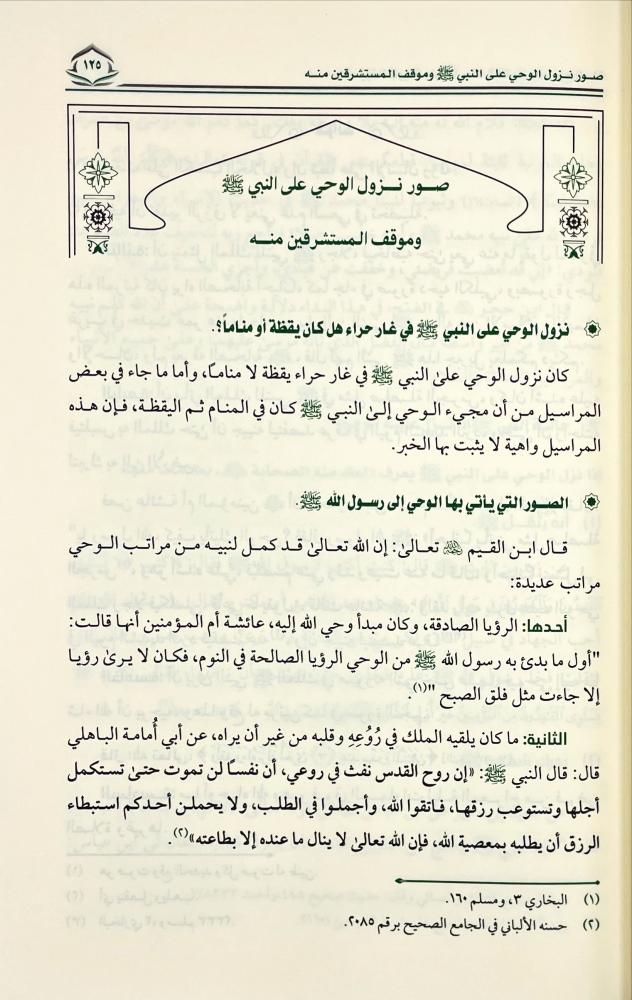 صور نزول الوحي على النبي ﷺ وموقف المستشرقين منه
١٢٥
صور نزول الوحي على النبي ﷺ
وموقف المستشرقين منه
نزول الوحي على النبي ﷺ في غار حراء هل كان يقظة أو مناماً؟.
كان نزول الوحي علىٰ النبي ﷺ في غار حراء يقظة لا مناما، وأما ما جاء في بعض
المراسيل من أن مجيء الوحي إلىٰ النبي ﷺ كان في المنام ثم اليقظة، فإن هذه
المراسيل واهية لا يثبت بها الخبر.
الصور التي يأتي بها الوحي إلى رسول الله ﷺ.
قال ابن القيم رحمه الله تعالىٰ: إن الله تعالىٰ قد كمل لنبيه من مراتب الوحي
مراتب عديدة:
أحدها: الرؤيا الصادقة، وكان مبدأ وحي الله إليه، عائشة أم المؤمنين أنها قالت:
"أول ما بدئ به رسول الله ﷺ من الوحي الرؤيا الصالحة في النوم، فكان لا يرىٰ رؤيا
إلا جاءت مثل فلق الصبح "(١).
الثانية: ما كان يلقيه الملك في رُوُعِهِ وقلبه من غير أن يراه، عن أبي أُمامة الباهلي
قال: قال النبي ﷺ: «إن روح القدس نفث في روعي، أن نفسًا لن تموت حتىٰ تستكمل
أجلها وتستوعب رزقها، فاتقوا الله، وأجملوا في الطلب، ولا يحملن أحدكم استبطاء
الرزق أن يطلبه بمعصية الله، فإن الله تعالىٰ لا ينال ما عنده إلا بطاعته»(٢).
(١) البخاري ٣، ومسلم ١٦٠.
(٢) حسنه الألباني في الجامع الصحيح برقم ٢٠٨٥.